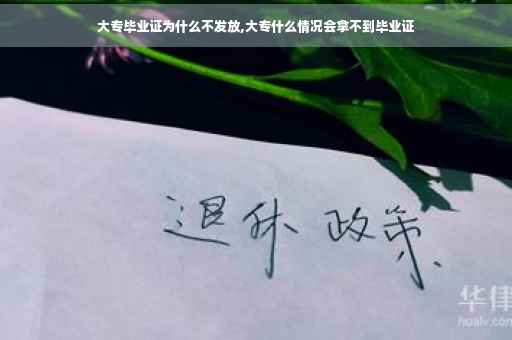 大专毕业证为什么不发放,大专什么情况会拿不到毕业证
退休 政策
华律
hualv.com